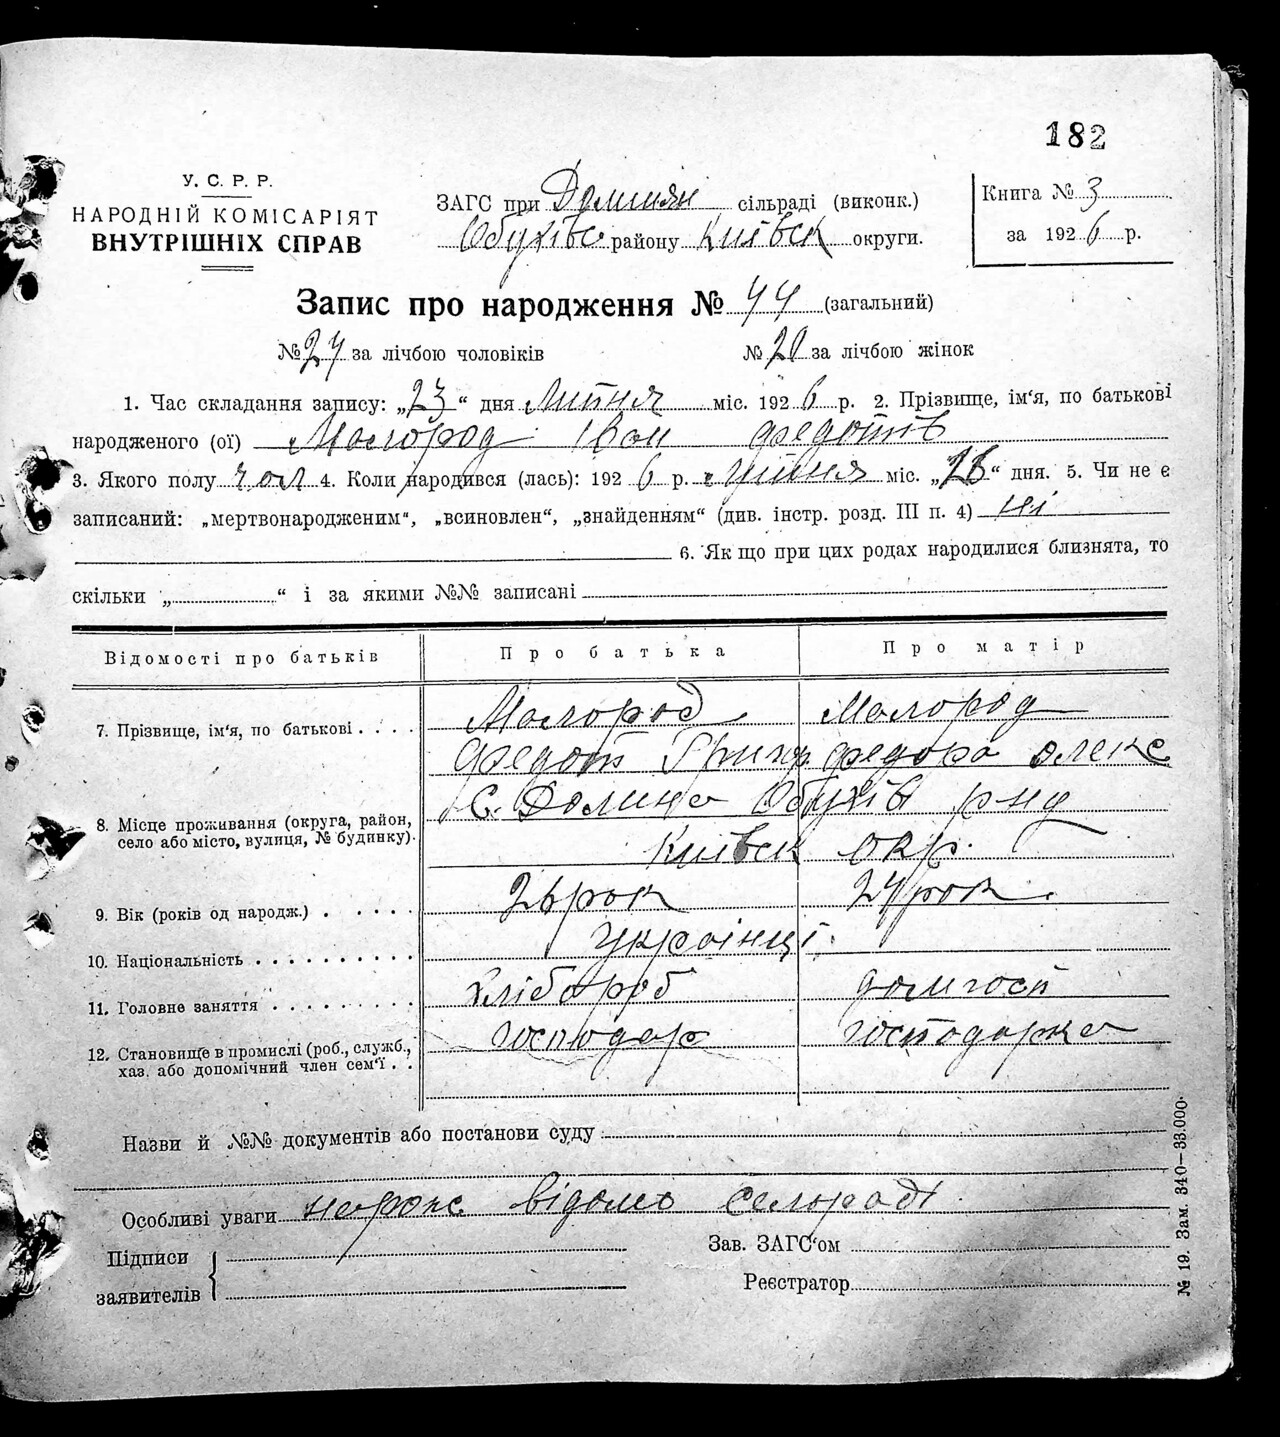 182
У. С. Р. Р.
НАРОДНІЙ КОМІСАРІЯТ
ВНУТРІШНІХ СПРАВ
ЗАГС при Долинян сільраді (виконк.)
Обухівс району Київск округи.
Книга № 3
за 1926 р.
Запис про народження № 44 (загальний)
№ 24 за лічбою чоловіків № 20 за лічбою жінок
1. Час складання запису: „23“ дня Липня міс. 1926 р. 2. Прізвище, ім'я, по батькові
народженого (ої) Малород Іван Федотів
3. Якого полу чол 4. Коли народився (лась): 1926 р. міс. „ “ дня. 5. Чи не є
записаний: „мертвонародженим“, „всиновлен“, „знайденням“ (див. інстр. розд. III п. 4) ні
6. Як що при цих родах народилися близнята, то
скільки „ “ і за якими №№ записані
Відомості про батьків Про батька Про матір
7. Прізвище, ім'я, по батькові . . . . Малород Малород
Федот Григор Федора Олекс
8. Місце проживання (округа, район, село або місто, вулиця, № будинку). С. Долина Обухів рну
Київск окр.
9. Вік (років од народж.) . . . . . 26 рок 24 рок.
10. Національність . . . . . . . . . . українці.
11. Головне заняття . . . . . . . . . Хлібороб домгосп
12. Становище в промислі (роб., служб., хаз. або допомічний член сем'ї . . господар господарка
Назви й №№ документів або постанови суду
Особливі уваги народж відомо селораді
Підписи
заявителів
Зав. ЗАГС'ом
Реєстратор
№ 19. Зам. 340—33.000.